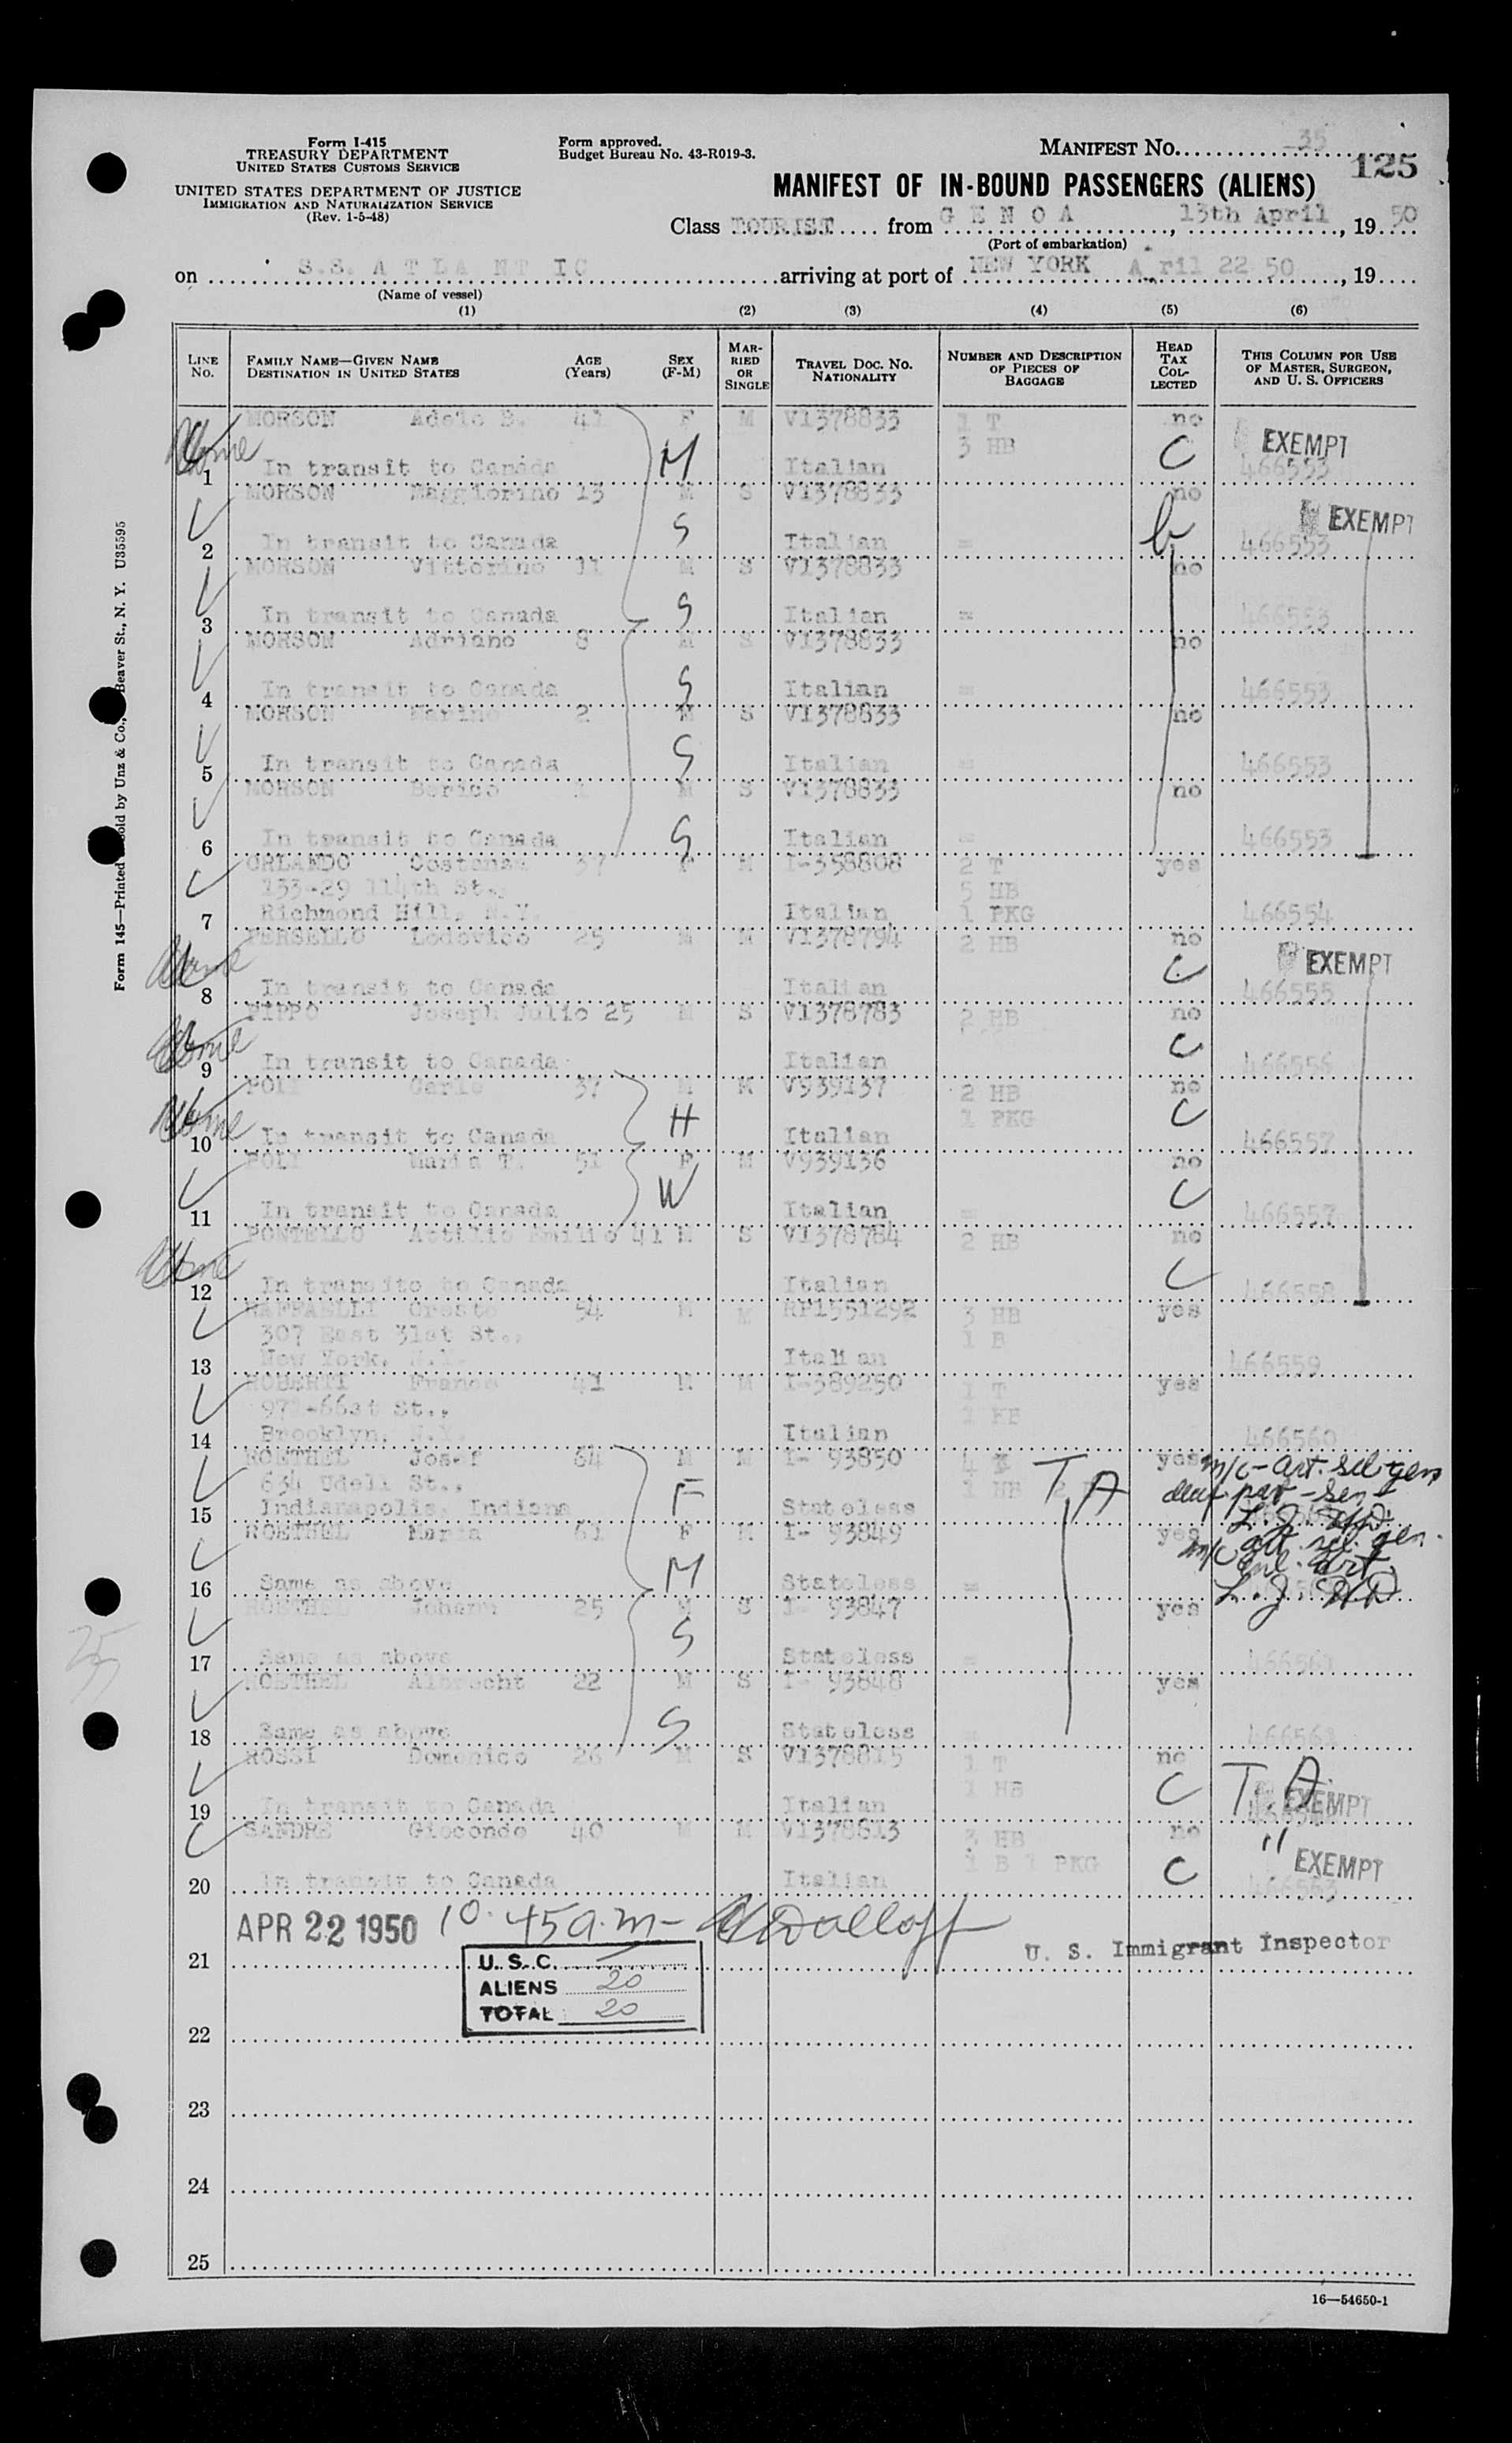 Form I-415
TREASURY DEPARTMENT
UNITED STATES CUSTOMS SERVICE
UNITED STATES DEPARTMENT OF JUSTICE
IMMIGRATION AND NATURALIZATION SERVICE
(Rev. 1-5-48)
Form approved.
Budget Bureau No. 43-R019-3.
MANIFEST No. 35
125
MANIFEST OF IN-BOUND PASSENGERS (ALIENS)
Class TOURIST from G E N O A, 13th April, 19 50
(Port of embarkation)
on S.S. A T L A N T I C arriving at port of NEW YORK A ril 22 50, 19
(Name of vessel)
(1) (2) (3) (4) (5) (6)
LINE No. FAMILY NAME—GIVEN NAME DESTINATION IN UNITED STATES AGE (Years) SEX (F-M) MARRIED OR SINGLE TRAVEL DOC. NO. NATIONALITY NUMBER AND DESCRIPTION OF PIECES OF BAGGAGE HEAD TAX COLLECTED THIS COLUMN FOR USE OF MASTER, SURGEON, AND U. S. OFFICERS
MORSON Adele B. 41 F M V1378833 1 T no
3 HB EXEMPT
1 In transit to Canada M Italian C 466553
MORSON Maggiorino 13 M S V1378833 no
EXEMPT
2 In transit to Canada S Italian = 466553
MORSON Vittorino 11 M S V1378833 no
3 In transit to Canada S Italian = 466553
MORSON Adriano 8 M S V1378833 no
4 In transit to Canada S Italian = 466553
MORSON Marino 2 M S V1378833 no
5 In transit to Canada S Italian = 466553
MORSON 1 M S V1378833 no
6 In transit to Canada S Italian = 466553
ORLANDO 37 F M I-358808 2 T yes
133-29 114th St., 5 HB
7 Richmond Hill, N.Y. Italian 1 PKG 466554
PERSELLO Lodovico 25 M M V1378794 2 HB no
C EXEMPT
8 In transit to Canada Italian 466555
PIPPO Joseph Julio 25 M S V1378783 2 HB no
C
9 In transit to Canada Italian 466556
POLI Carlo 37 M M V939137 2 HB no
H 1 PKG C
10 In transit to Canada Italian 466557
POLI Maria T. 51 F M V939136 no
W C
11 In transit to Canada Italian = 466557
PONTELLO Attilio Emilio 41 M S V1378784 2 HB no
C
12 In transito to Canada Italian 466558
RAFFAELLI Oreste 54 M M RP1551292 3 HB yes
307 East 31st St., 1 B
13 New York, N.Y. Italian 466559
ROBERTI Franco 41 M M I-389250 1 T yes
971-66st St.,
14 Brooklyn, N.Y. Italian 466560
ROETHEL Josef 64 M M I- 93850 yes
634 Udell St., F T.A
15 Indianapolis, Indiana Stateless
ROETHEL Maria 61 F M I- 93849 yes
M
16 Same as above Stateless =
ROETHEL Johann 25 M S I- 93847 yes
S
17 Same as above Stateless = 466561
ROETHEL Albrecht 22 M S I- 93848 yes
S
18 Same as above Stateless = 466561
ROSSI Domenico 26 M S V1378815 1 T no
1 HB C T.A.
19 In transit to Canada Italian EXEMPT
SANDRE Giocondo 40 M M V1378813 3 HB no "
1 B 1 PKG C EXEMPT
20 In transit to Canada Italian 466563
APR 22 1950 10.45 a.m-
21 U. S. Immigrant Inspector
U. S. C.
ALIENS 20
TOTAL 20
22
23
24
25
16—54650-1